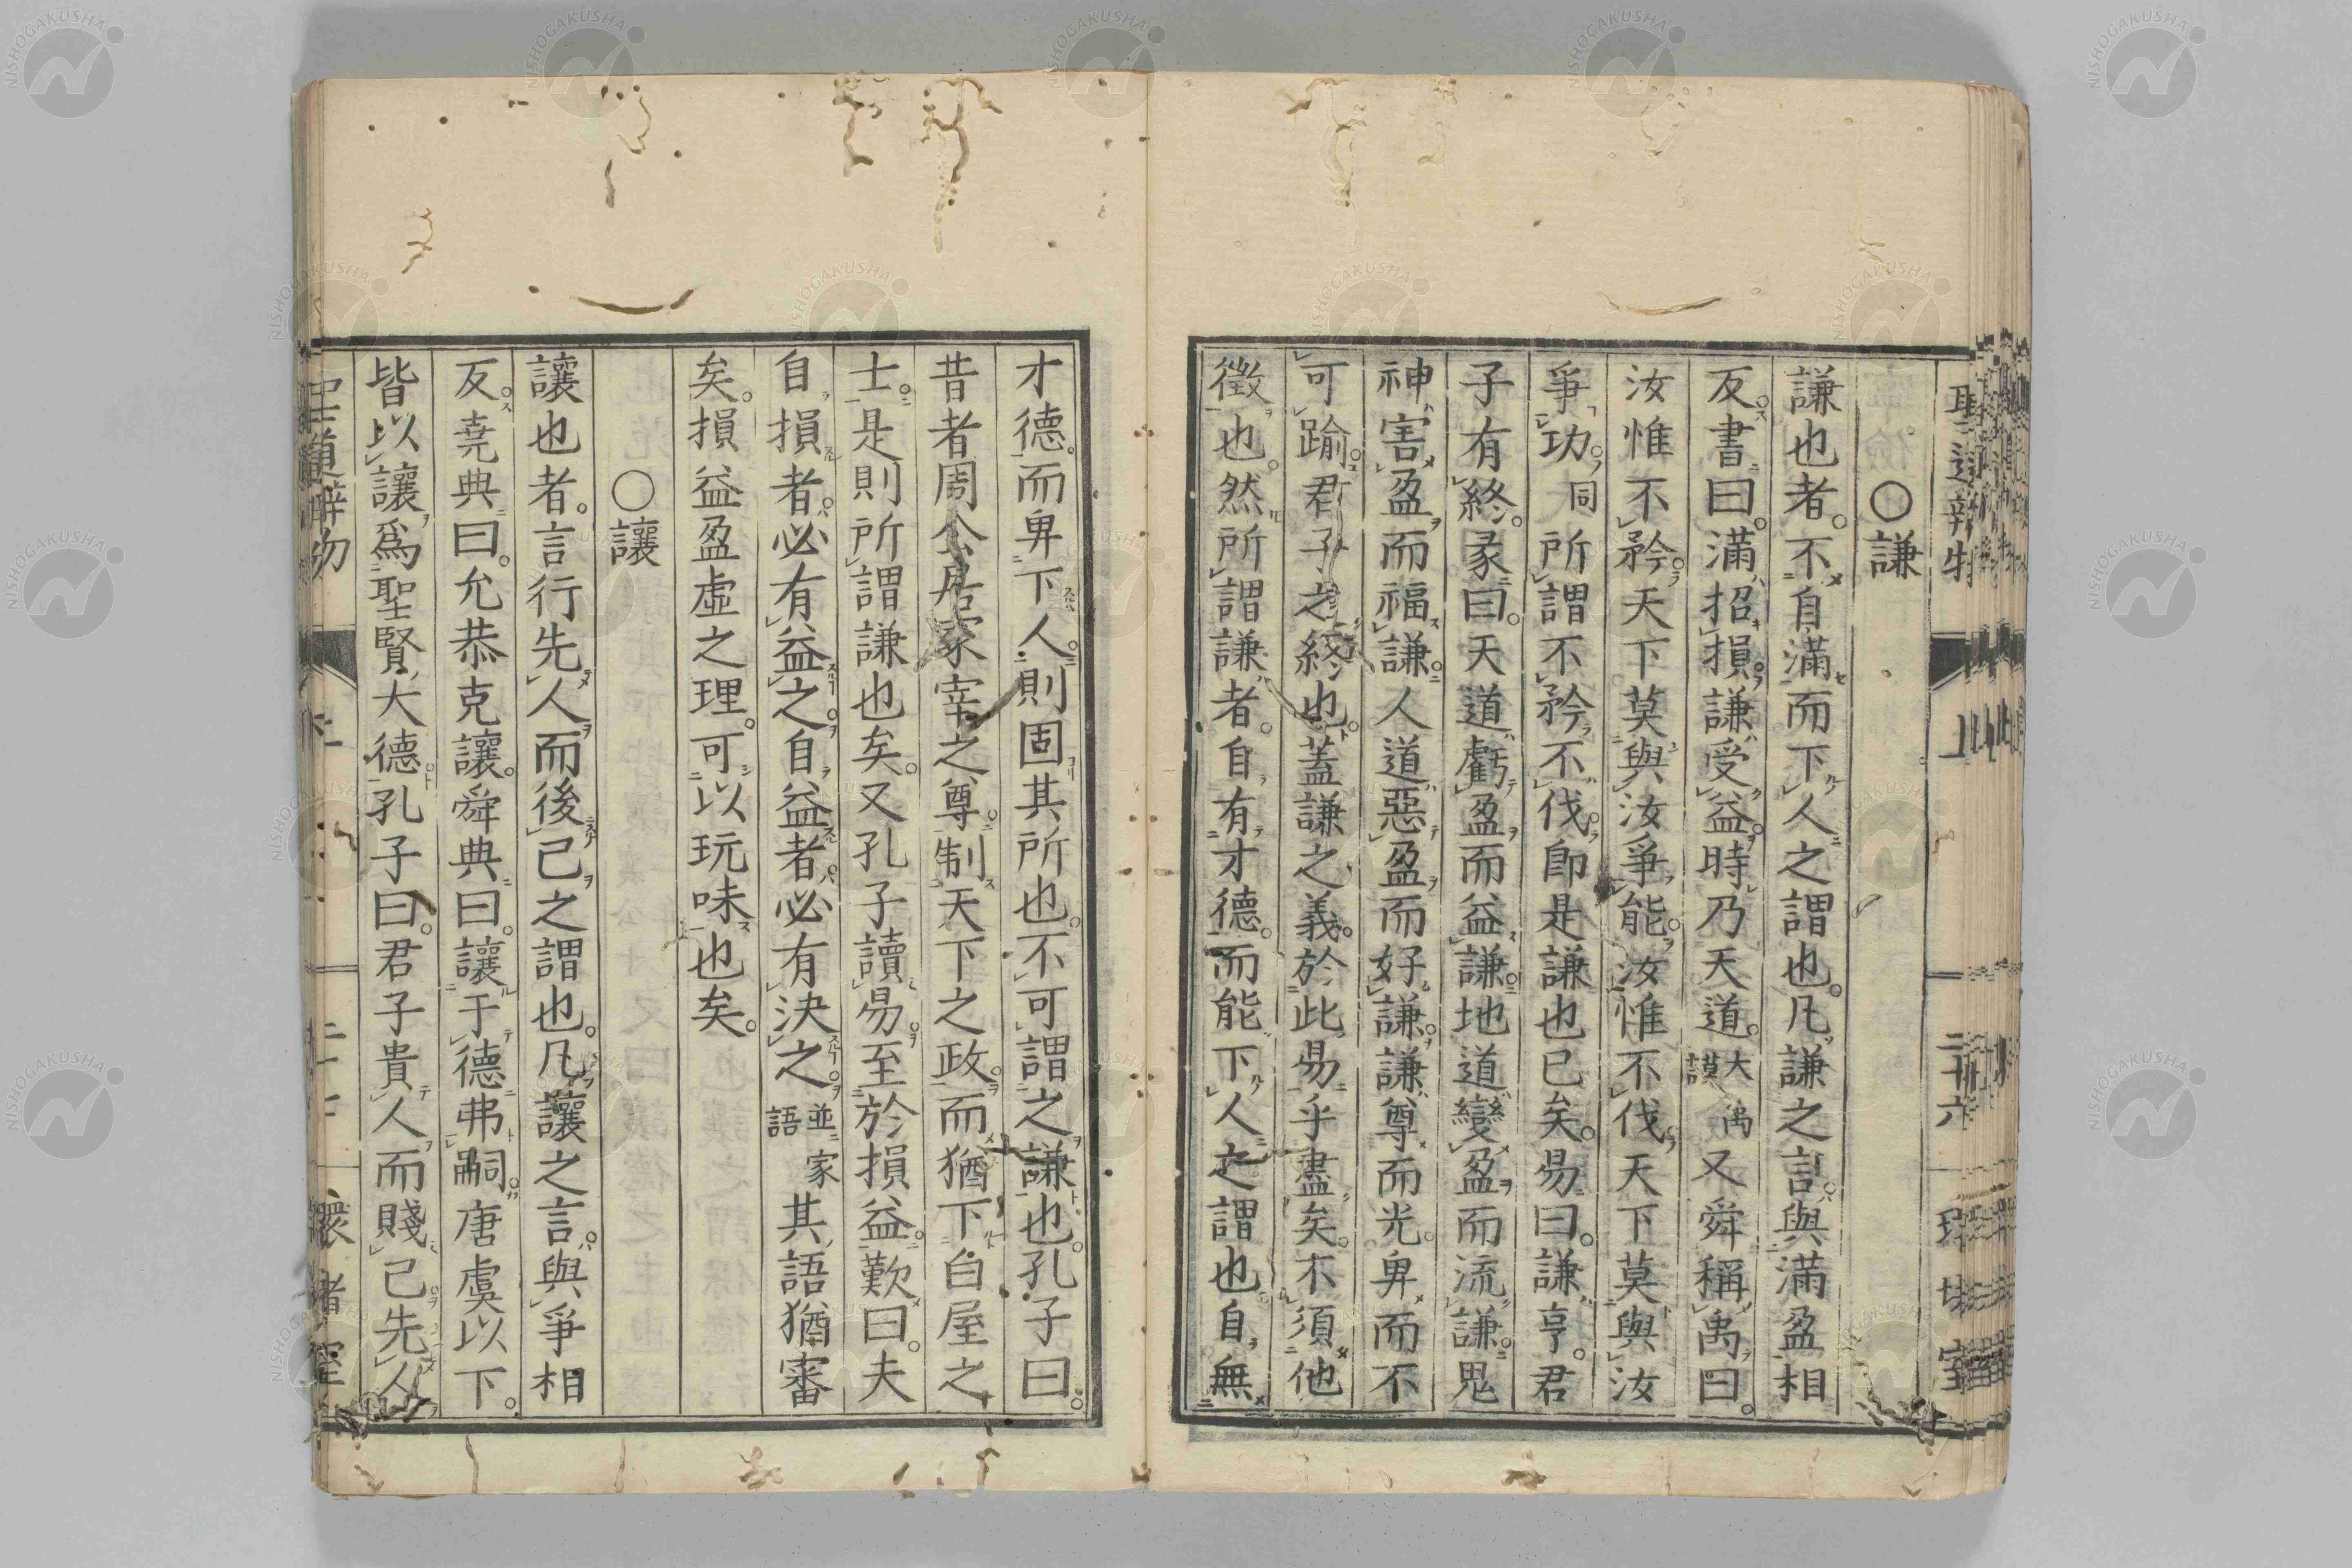 ○謙
謙也者。不自滿而下人之謂也。凡謙之言。與滿盈相
反。書曰。滿招損。謙受益。時乃天道。大禹謨又舜稱禹曰。
汝惟不矜。天下莫與汝爭能。汝惟不伐。天下莫與汝
爭功。同所謂不矜不伐。卽是謙也已矣。易曰。謙亨。君
子有終。彖曰。天道虧盈而益謙。地道變盈而流謙。鬼
神害盈而福謙。人道惡盈而好謙。謙尊而光。卑而不
可踰。君子之終也。蓋謙之義。於此易乎盡矣。不須他
徵也。然所謂謙者。自有才德。而能下人之謂也。自無
才德。而卑下人。則固其所也。不可謂之謙也。孔子曰。
昔者周公居冢宰之尊。制天下之政。而猶下白屋之
士。是則所謂謙也矣。又孔子讀易。至於損益。歎曰。夫
自損者。必有益之。自益者。必有決之。並家語其語猶審
矣。損益盈虛之理。可以玩味也矣。
○讓
讓也者。言行先人而後己之謂也。凡讓之言。與爭相
反。堯典曰。允恭克讓。舜典曰。讓于德弗嗣。唐虞以下。
皆以讓爲聖賢大德。孔子曰。君子貴人而賤己。先人